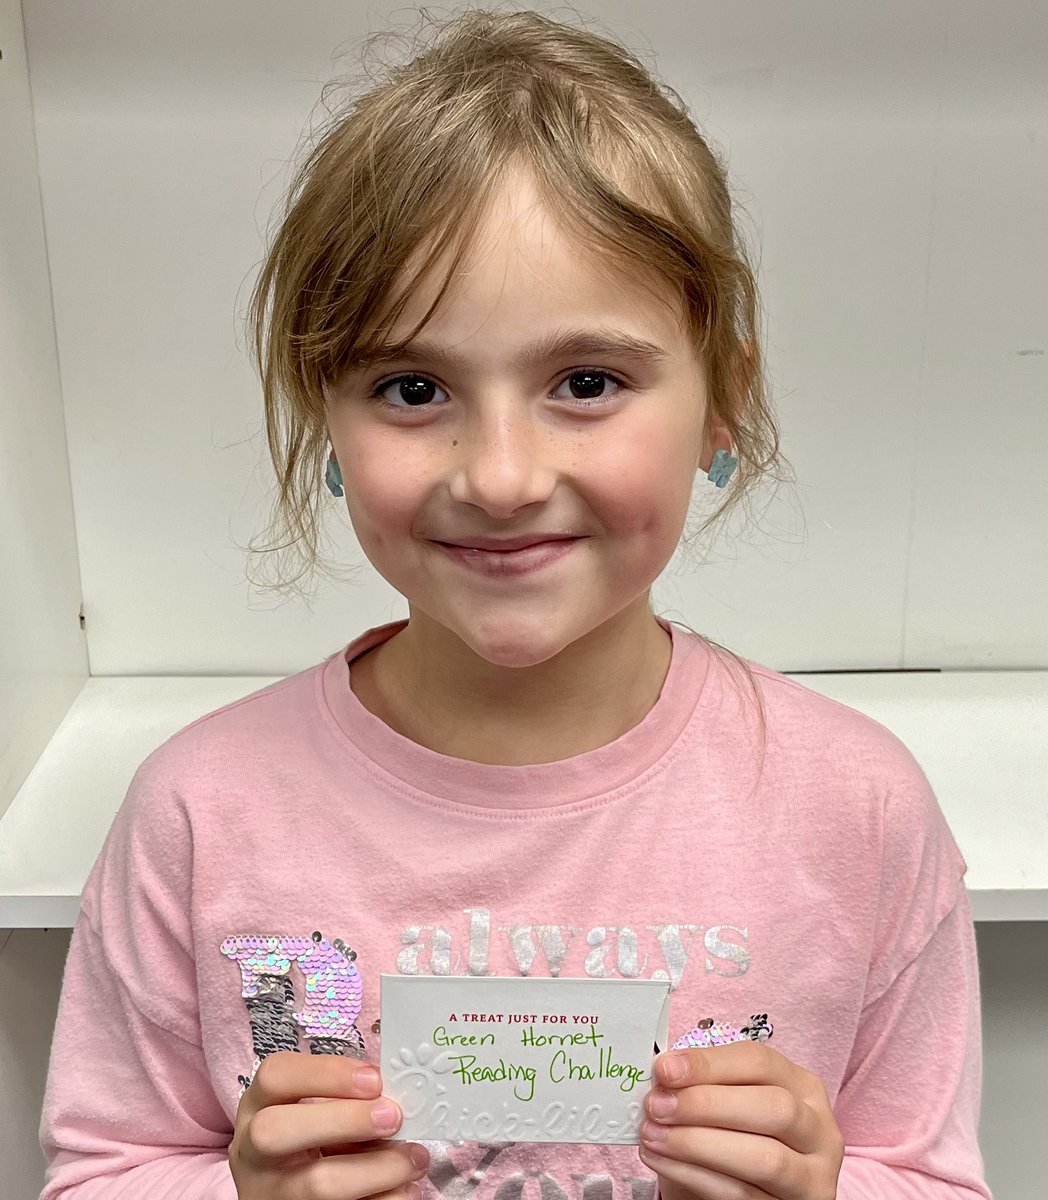 always
A TREAT JUST FOR YOU
Green Hornet
Reading Challenge
Chick-fil-
You